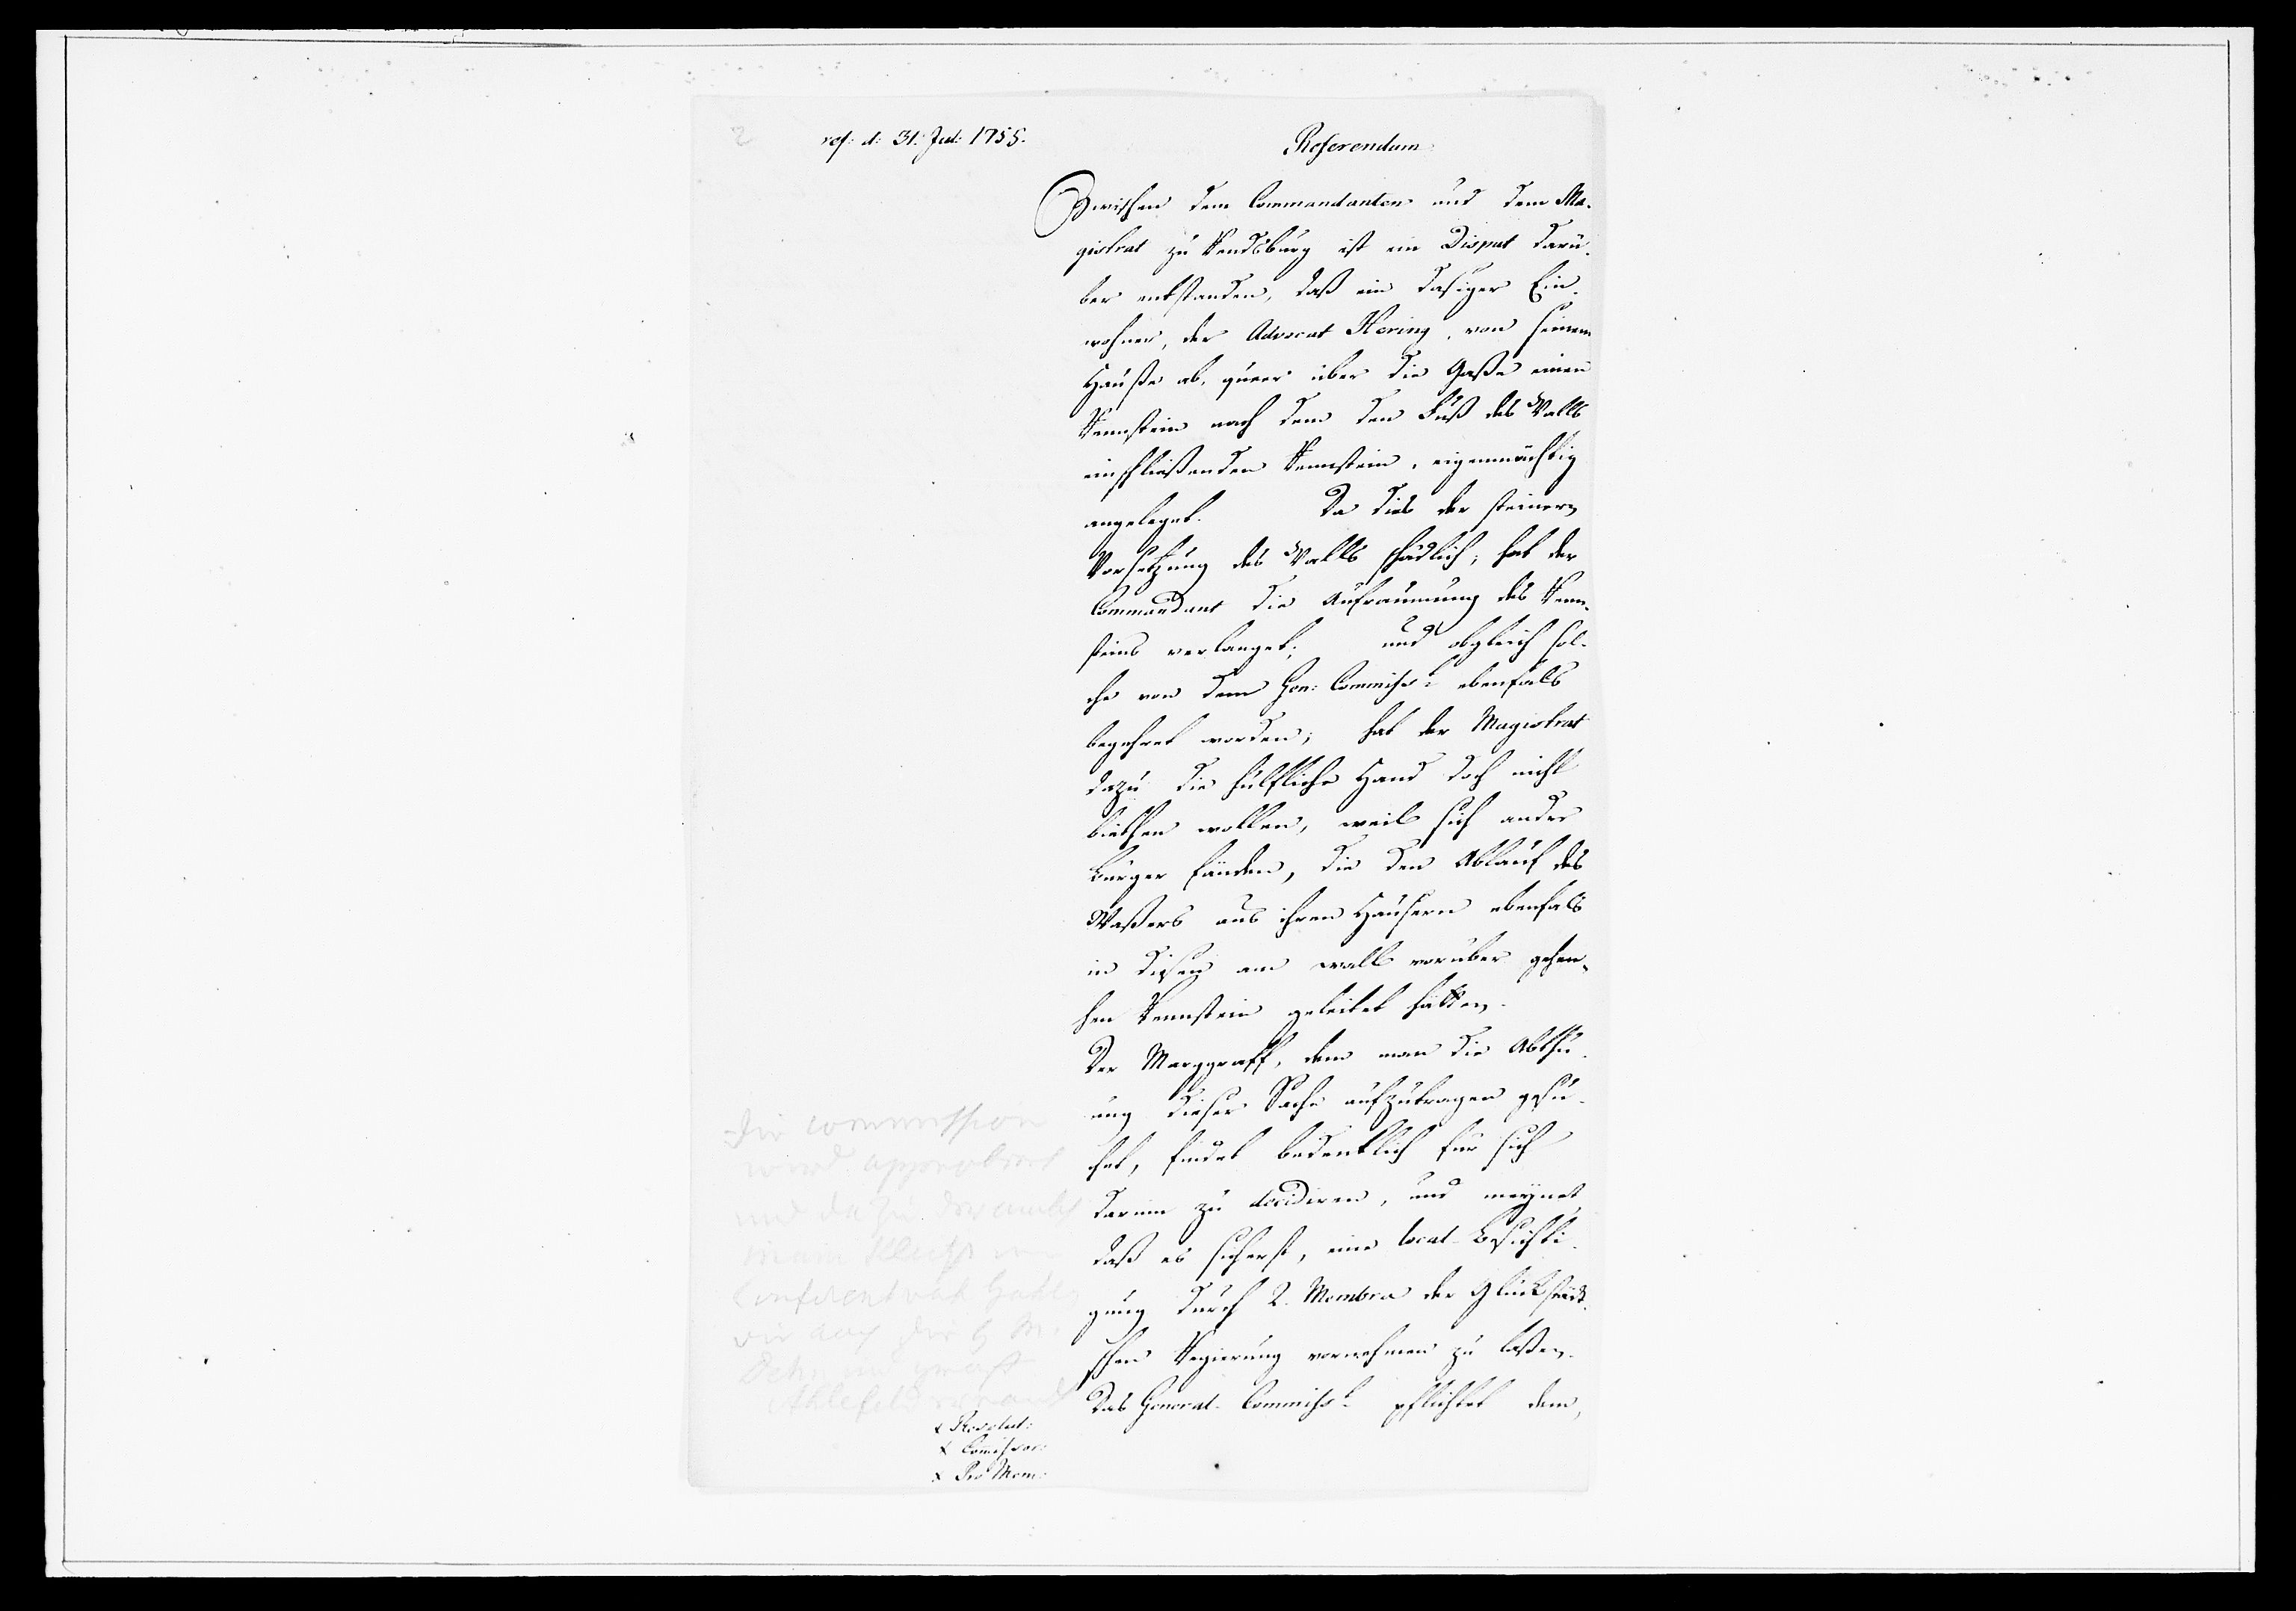 2
ref: d: 31. Jul: 1755.
Referendum
Zwischen dem Commandanten und dem Ma-
gistrat zu Rendsburg ist ein Disput darü-
ber entstanden, daß ein dasiger Ein-
wohner, der Advocat Hering, von seinem
Hauße ab, queer über die Gaße einen
Rennstein nach dem den Fuß des Walls
einschließenden Rennstein, eigenmächtig
angeleget. Da dies der steinern
Vorsetzung des Walls schädlich; hat der
Commandant die Aufräumung des Renn-
steins verlanget; und obgleich sol-
che von dem Gen: Commiss: ebenfalls
begehret worden; hat der Magistrat
dazu die hülfliche Hand doch nicht
biethen wollen, weil sich andre
Bürger fänden, die den Ablauf des
Waßers aus ihren Häusern ebenfals
in diesen am Wall vorüber gehen-
hen Rennstein geleitet hätten.
Der Marggraff, dem man die Abthu-
ung dieser Sache aufzutragen gesu-
chet, findet bedenklich für sich
darinn zu decidiren, und meynet,
daß es sicherst, eine local-Besichti-
gung durch 2. Membra der Glückstädt-
schen Regierung vornehmen zu laßen.
Das General-Commiss: pflichtet dem,
Die Commission
wird approbirt
und dazu der
Conferentrath
die G M.
Dehn und
Ahlefeld
x Resolut:
x Commissor:
x Pro Mem: